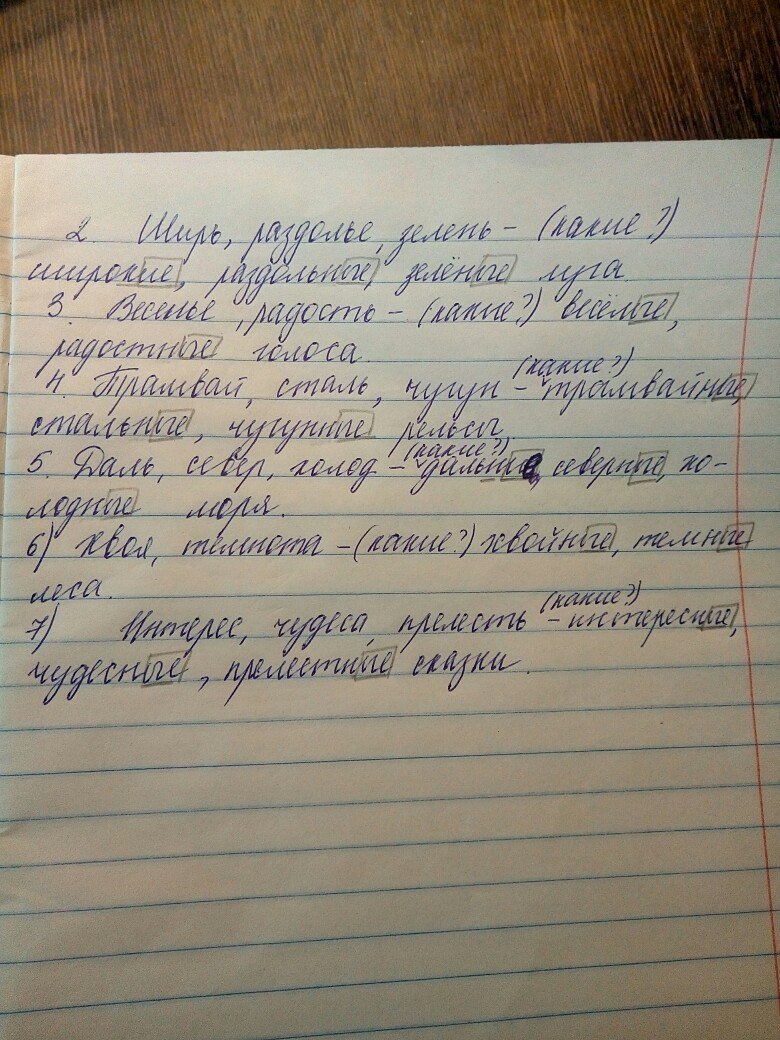 2. Ширь, раздолье, зелень – (какие?)
широкие, раздольные, зелёные луга.
3. Веселье, радость – (какие?) весёлые,
радостные голоса.
4. Трамвай, сталь, чугун – (какие?) трамвайные,
стальные, чугунные рельсы.
5. Даль, север, холод – (какие?) дальние, северные, хо-
лодные моря.
6) Хвоя, темнота – (какие?) хвойные, темные
леса.
7) Интерес, чудеса, прелесть – (какие?) интересные,
чудесные, прелестные сказки.